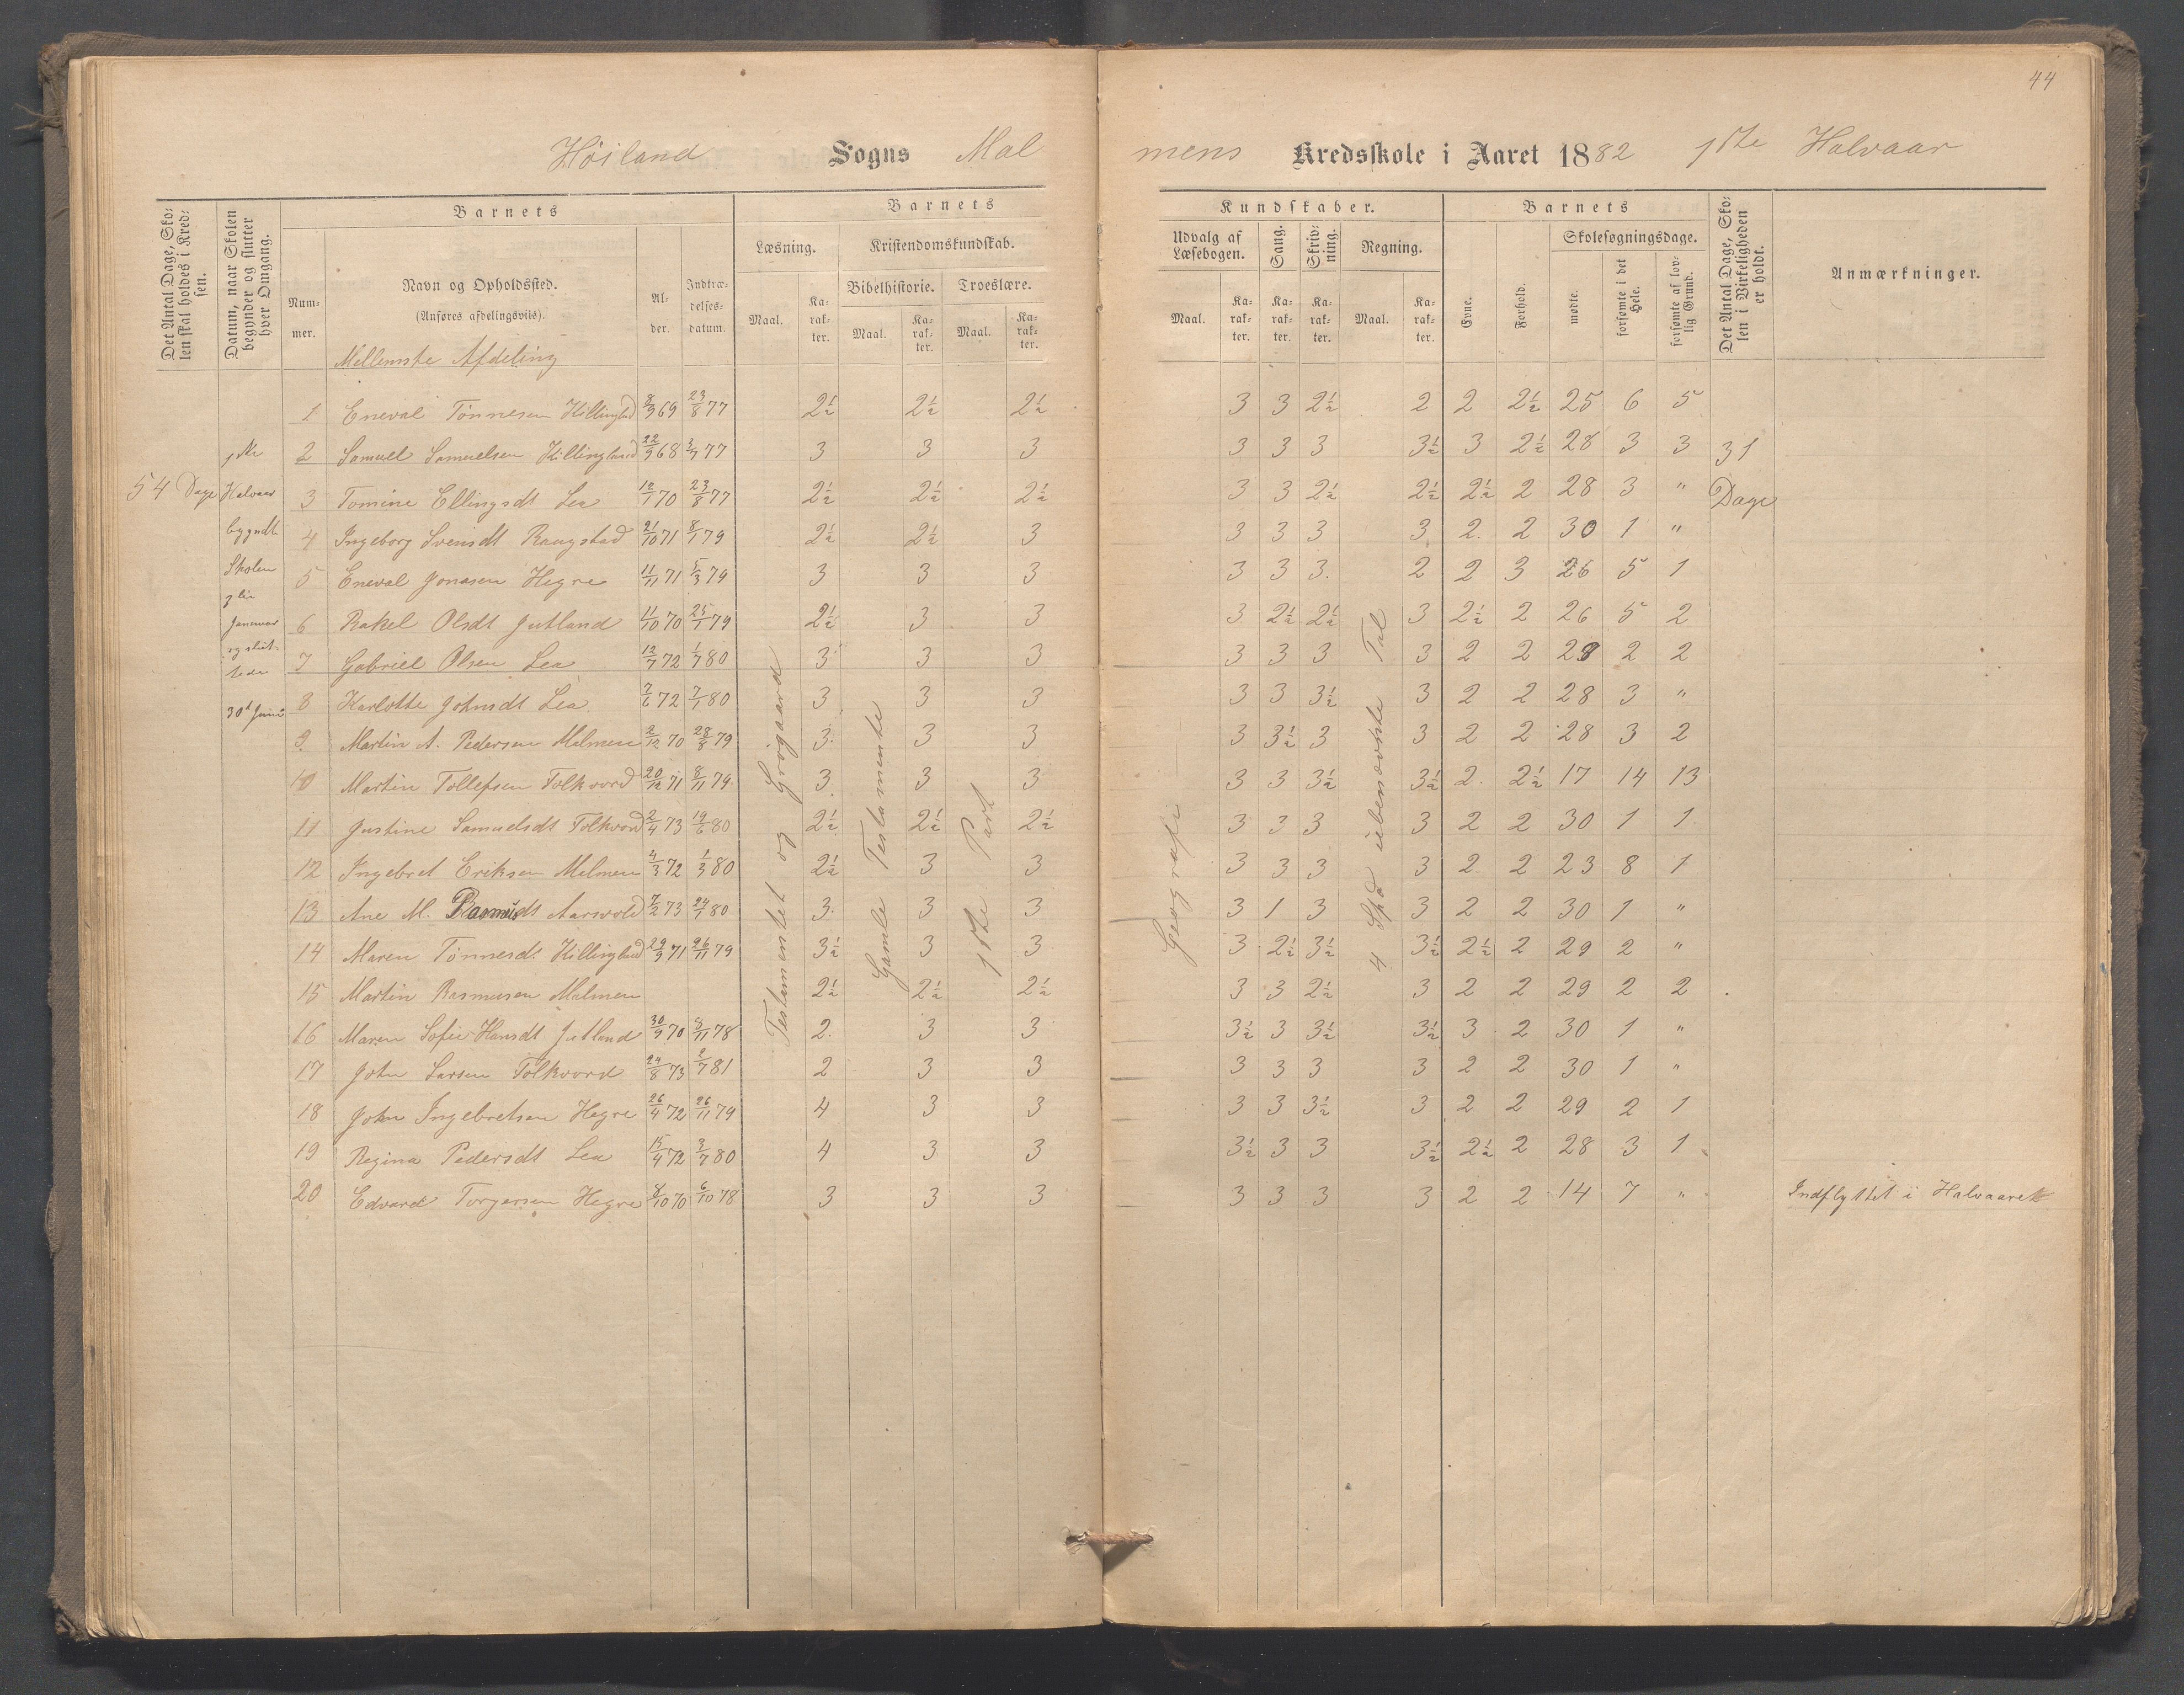 44
Höiland Sogns Malmens Kredsskole i Aaret 1882 1ste Halvaar
Det Antal Dage, Skolen skal holdes i Kredsen.
Datum, naar Skolen begynder og slutter hver Omgang.
Barnets
Nummer.
Navn og Opholdssted.
(Anføres afdelingsviis).
Alder.
Indtrædelsesdatum.
Barnets
Læsning.
Maal.
Karakter.
Kristendomskundskab.
Bibelhistorie.
Maal.
Karakter.
Troeslære.
Maal.
Karakter.
Kundskaber.
Udvalg af Læsebogen.
Maal.
Karakter.
Sang.
Karakter.
Skrivning.
Karakter.
Regning.
Maal.
Karakter.
Barnets
Evne.
Forhold.
Skolesøgningsdage.
mødte.
forsømte i det Hele.
forsømte af lovlig Grund.
Det Antal Dage, Skolen i Virkeligheden er holdt.
Anmærkninger.
Mellemste Afdeling
54 Dage
1ste
Halvaar
bygndte
Skolen
Januar
og slut-
tede
30t Juni
Testamentet og Grögaard
Gamle Testamente
1ste Part
Geografi
31
Dage
1 Eneval Tönnesen Killingland 8/3 69 23/8 77 2½ 2½ 2½ 3 3 2½ 2 2 2½ 25 6 5
2 Samuel Samuelsen Killingland 22/9 68 3/7 77 3 3 3 3 3 3 3½ 3 2½ 28 3 3
3 Tomine Ellingsdt Lea 12/1 70 23/8 77 2½ 2½ 2½ 3 3 2½ 2½ 2½ 2 28 3 "
4 Ingeborg Svensdt Raugstad 21/10 71 8/1 79 2½ 2½ 3 3 3 3 3 2. 2 30 1 "
5 Eneval Jonasen Hegre 11/11 71 5/3 79 3 3 3 3 3 3. 2 2 3 26 5 1
6 Rakel Olsdt Jutland 11/10 70 25/1 79 2½ 3 3 3 2½ 2½ 3 2½ 2 26 5 2
7 Gabriel Olsen Lea 12/7 72 1/7 80 3 3 3 3 3 3 3 2 2 28 2 2
8 Karlotte Johnsdt Lea. 7/6 72 7/1 80 3 3 3 3 3 3½ 3 2 2 28 3 "
9. Martin A. Pedersen Malmen 2/12 70 28/8 79 3. 3 3 3 3½ 3 3 2 2 28 3 2
10 Martin Tollefsen Folkvord 20/12 71 8/11 79. 3. 3 3 3 3 3½ 3½ 2. 2½ 17 14 13
11 Justine Samuelsdt Folkvord 2/4 73 19/6 80 2½ 2½ 2½ 3 3 3 3 2 2 30 1 1
12 Ingebret Eriksen Malmen 4/3 72 1/3 80 2½ 3 3 3 3 3 3 2. 2 23 8 1
13 Ane M. Rasmusdt Aarsvold 7/2 73 24/1 80 3. 3 3 3 1 3 3 2 2 30 1 "
14 Maren Tönnesdt. Killingland 29/9 71 26/11 79 3½ 3 3 3 2½ 3½ 3½ 2½ 2 29 2 "
15 Martin Rasmusen Malmen 2½ 2½ 2½ 3 3 2½ 3 2 2 29 2 2
16 Maren Sofie Hansdt Jutland 30/9 70 8/11 78 2. 3 3 3½ 3 3½ 3½ 3 2 30 1 "
17 John Larsen Folkvord 24/8 73 2/7 81 2 3 3 3 3 3 3 2 2 30 1 "
18 John Ingebretsen Hegre 26/4 72 26/11 79 4 3 3 3 3 3½ 3 2 2 29 2 1
19 Regina Pedersdt Lea 15/4 72 3/7 80 4 3 3 3½ 3 3 3½ 2½ 2 28 3 1
20 Edvard Torgersen Hegre 8/10 70 6/10 78 3 3 3 3 3 3 3 2 2 14 7 " Indflyttet i Halvaaret